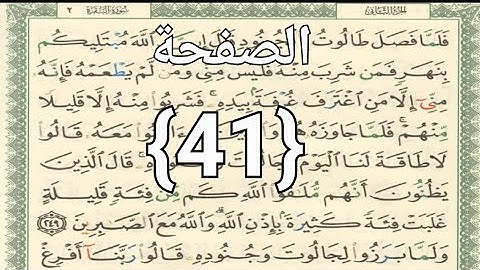 الجزء الثاني
سورة البقرة ٢
فَلَمَّا فَصَلَ طَالُوتُ قَالَ إِنَّ اللَّهَ مُبْتَلِيكُم
بِنَهَرٍ فَمَن شَرِبَ مِنْهُ فَلَيْسَ مِنِّي وَمَن لَّمْ يَطْعَمْهُ فَإِنَّهُ
مِنِّي إِلَّا مَنِ اغْتَرَفَ غُرْفَةً بِيَدِهِ فَشَرِبُوا مِنْهُ إِلَّا قَلِيلًا
مِّنْهُمْ فَلَمَّا جَاوَزَهُ مَعَهُ قَالُوا
لَا طَاقَةَ لَنَا الْيَوْمَ قَالَ الَّذِينَ
يَظُنُّونَ أَنَّهُم مُّلَاقُوا اللَّهِ كَم مِّن فِئَةٍ قَلِيلَةٍ
غَلَبَتْ فِئَةً كَثِيرَةً بِإِذْنِ اللَّهِ وَاللَّهُ مَعَ الصَّابِرِينَ ٢٤٩
وَلَمَّا بَرَزُوا لِجَالُوتَ وَجُنُودِهِ قَالُوا رَبَّنَا أَفْرِغْ
الصفحة
{41}